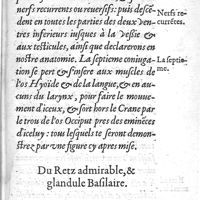 nerfs recurrens ou reuersifs: puis descē-
dent en toutes les parties des deux ven-
tres inferieurs iusques à la vessie &
aux testicules, ainsi que declarerons en
nostre anatomie. La septieme coniuga-
tion se pert & s'insere aux muscles de
l'os Hyoïde & de la langue, & en au-
cuns du larynx, pour faire le mouue-
ment d'iceux, & sort hors le Crane par
le trou de l'os Occiput pres des eminēces
d'iceluy: tous lesquels te seront demon-
strez par vne figure cy apres mise.
Nerfs re-
currētes.
La septie-
me.
Du Retz admirable, &
glandule Basilaire.